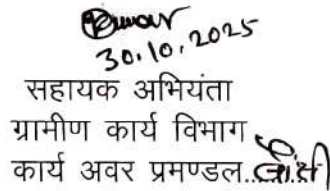 30.10.2025
सहायक अभियंता
ग्रामीण कार्य विभाग
कार्य अवर प्रमण्डल..........